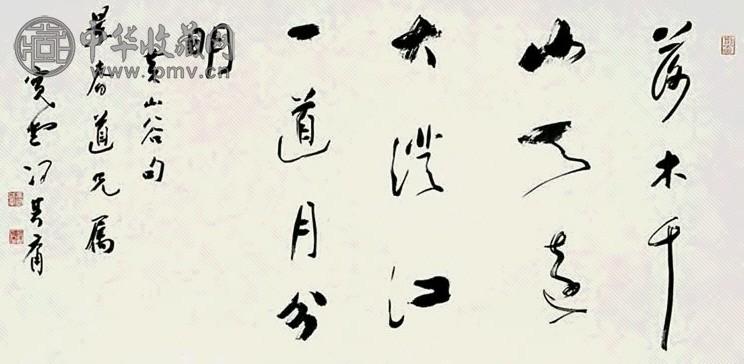 落木千
山天遠
大澄江
一道月分
明
黄山谷句
春道兄属
寬堂馮其庸
中华收藏网
www.pmv.cn